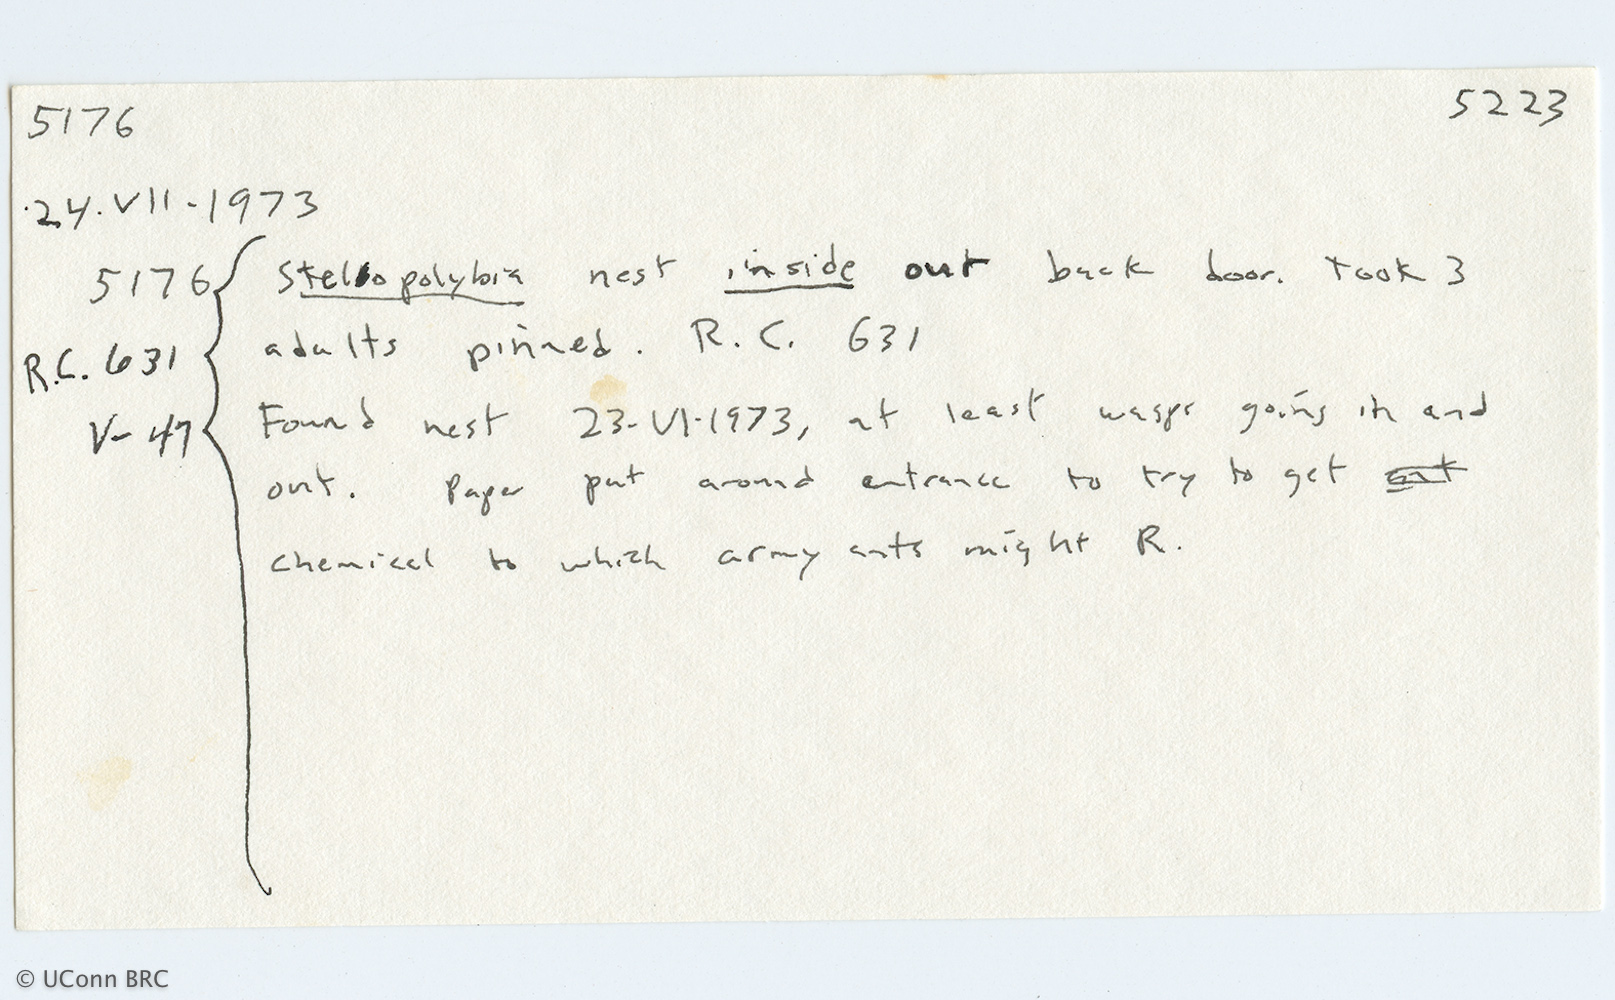 5176 5223
24.VII-1973
5176 Stelopolybia nest inside out back door. Took 3
R.C. 631 adults pinned. R.C. 631
V-47 Found nest 23-VI-1973, at least wasps going in and
out. Paper put around entrance to try to get
chemical to which army ants might R.
© UConn BRC